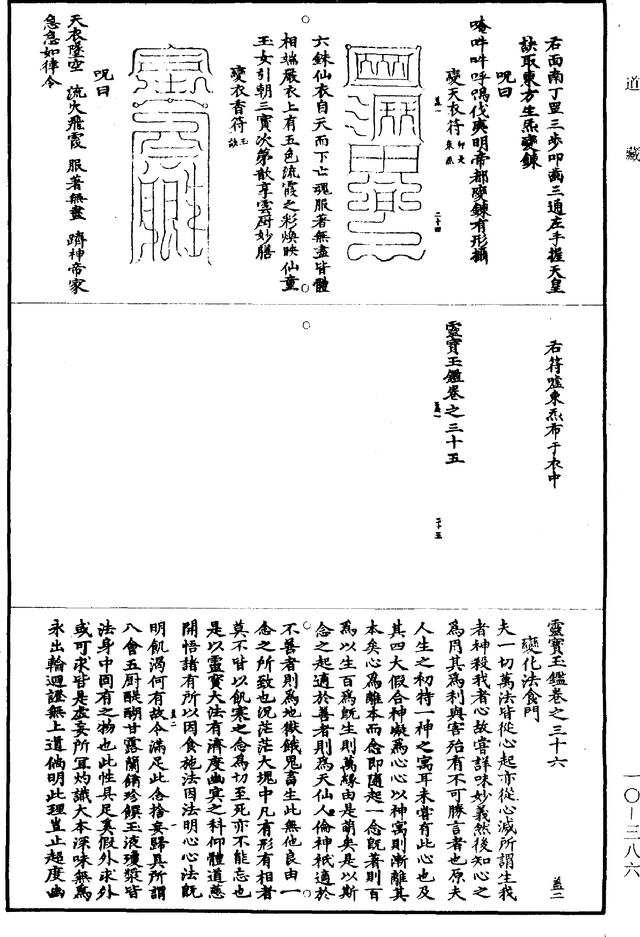 道藏
右面南丁罡三步叩齒三通左手握天皇
訣取東方生炁變鍊
呪曰
唵吽吽呼鳴伐㬰明帝都變鍊有形攝
變天衣符
六銖仙衣自天而下亡魂服著無盡皆體
相端嚴衣上有五色流霞之彩煥映仙童
玉女引朝三寶次第歆享雲厨妙膳
變衣香符
呪曰
天衣墜空 流火飛霞 服著無盡 躋神帝家
急急如律令
盖一
二十四
右符噓東炁布于衣中
靈寶玉鑑卷之三十五
盖一
二十五
靈寶玉鑑卷之三十六
盖二
變化法食門
夫一切萬法皆從心起亦從心滅所謂生我
者神殺我者心故嘗詳味妙義然後知心之
為用其為利與害殆有不可勝言者也原夫
人生之初特一神之寓耳未嘗有此心也及
其四大假合神凝為心心以神寓則漸離其
本矣心為離本而念即隨起一念既著則百
為以生百為既生則萬緣由是萌矣是以斯
念之起適於善者則為天仙人倫神祇適於
不善者則為地獄餓鬼畜生此無他良由一
念之所致也況茫茫大塊中凡有形有相者
莫不皆以飢寒之念為切至死亦不能忘也
是以靈寶大法有濟度幽冥之科仰體道慈
開悟諸有所以因食施法因法明心心法既
盖二
明飢渴何有故令滿足此合捨妄歸真所謂
八會五厨醍醐甘露蘭餚珍饌玉液瓊漿皆
法身中固有之物也此性具足奚假外求外
或可求皆是虛妄所冝灼識大本深味無為
永出輪迴證無上道倘明此理豈止超度幽
一〇—三八六